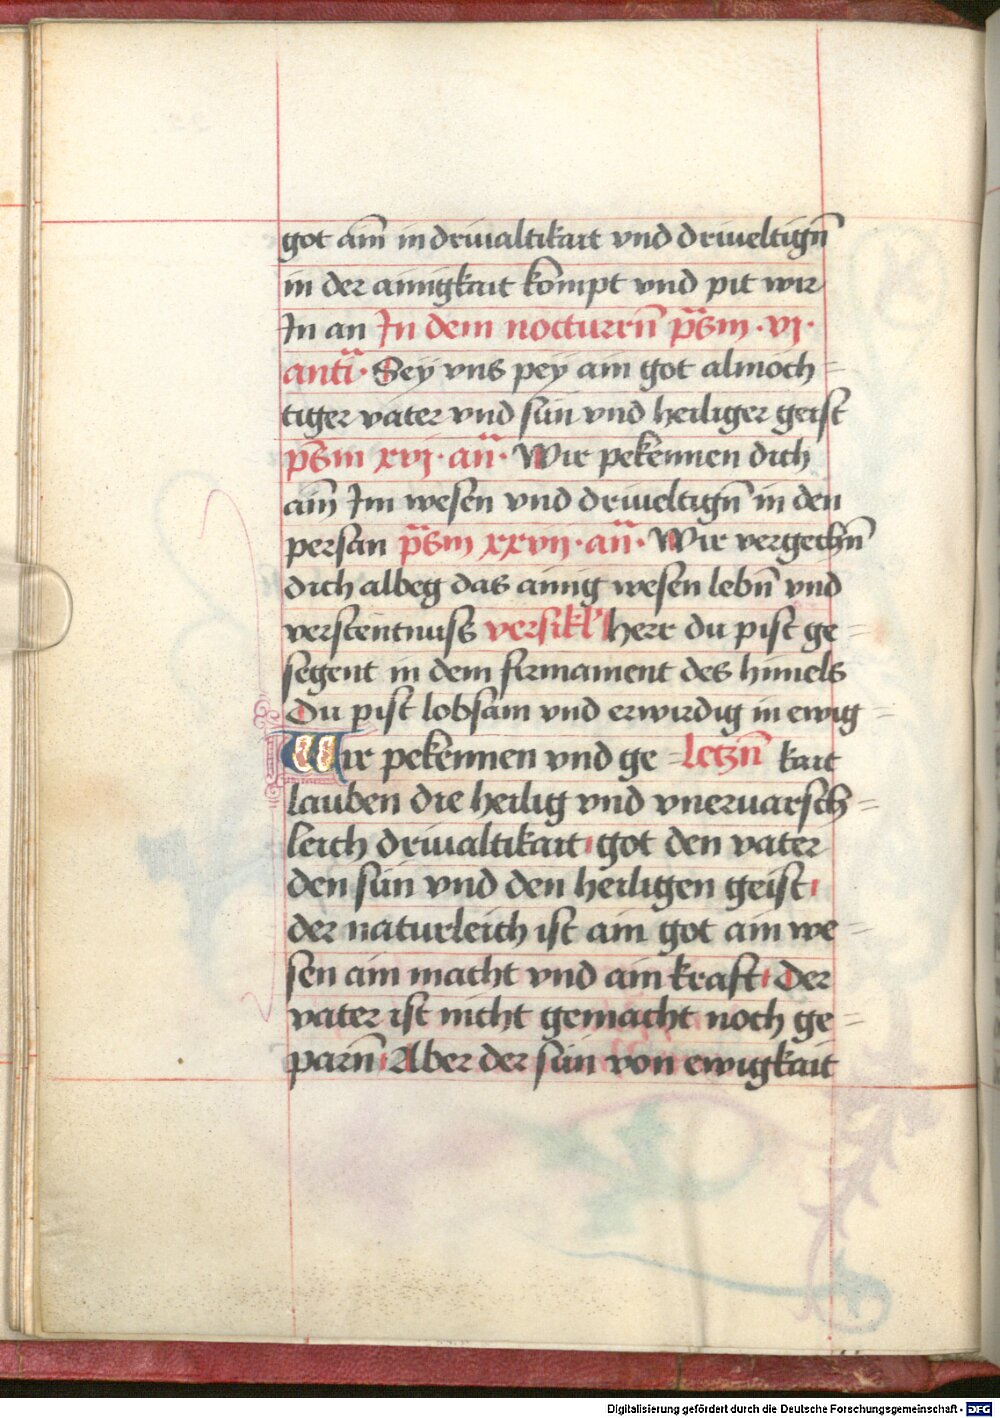 got aiñ in driualtikait vnd driueltign̄
in der ainigkait kompt vnd pit wir
In an In dem nocturrn̄ ps̄m · vj ·
anti̅ · Sey vns pey ain got almoch=
tiger vater vnd sün vnd heiliger geist
ps̄m xvj · an̄ · Wir pekennen dich
ain̄ Im wesen vnd driueltign̄ in den
persan ps̄m xxvij · an̄ · Wir vergechn̄
dich albeg das ainig wesen lebn̄ vnd
verstentnuss versikl' herr du pist ge=
segent in dem firmament des himels
Du pist lobsam vnd erwirdig in ewig=
Wir pekennen vnd ge= letzn̄ kait
lauben die heilig vnd vneruarsch=
leich driualtikait got den vater
den sün vnd den heiligen geist
der naturleich ist ain got ain we=
sen ain macht vnd ain kraft Der
vater ist nicht gemacht noch ge=
parn̄ Aber der sün von ewigkait
Digitalisierung gefördert durch die Deutsche Forschungsgemeinschaft - DFG